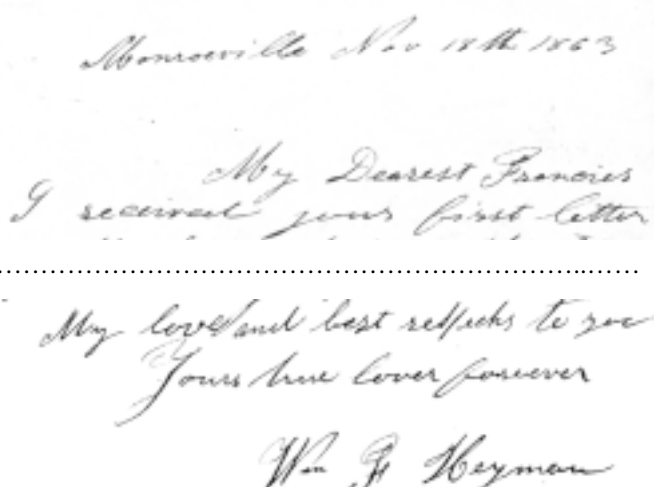 Monroeville Nov 18th 1863
My Dearest Francies
I received your first letter
My love and best respecks to you
Yours true lover forever
Wm F Heyman